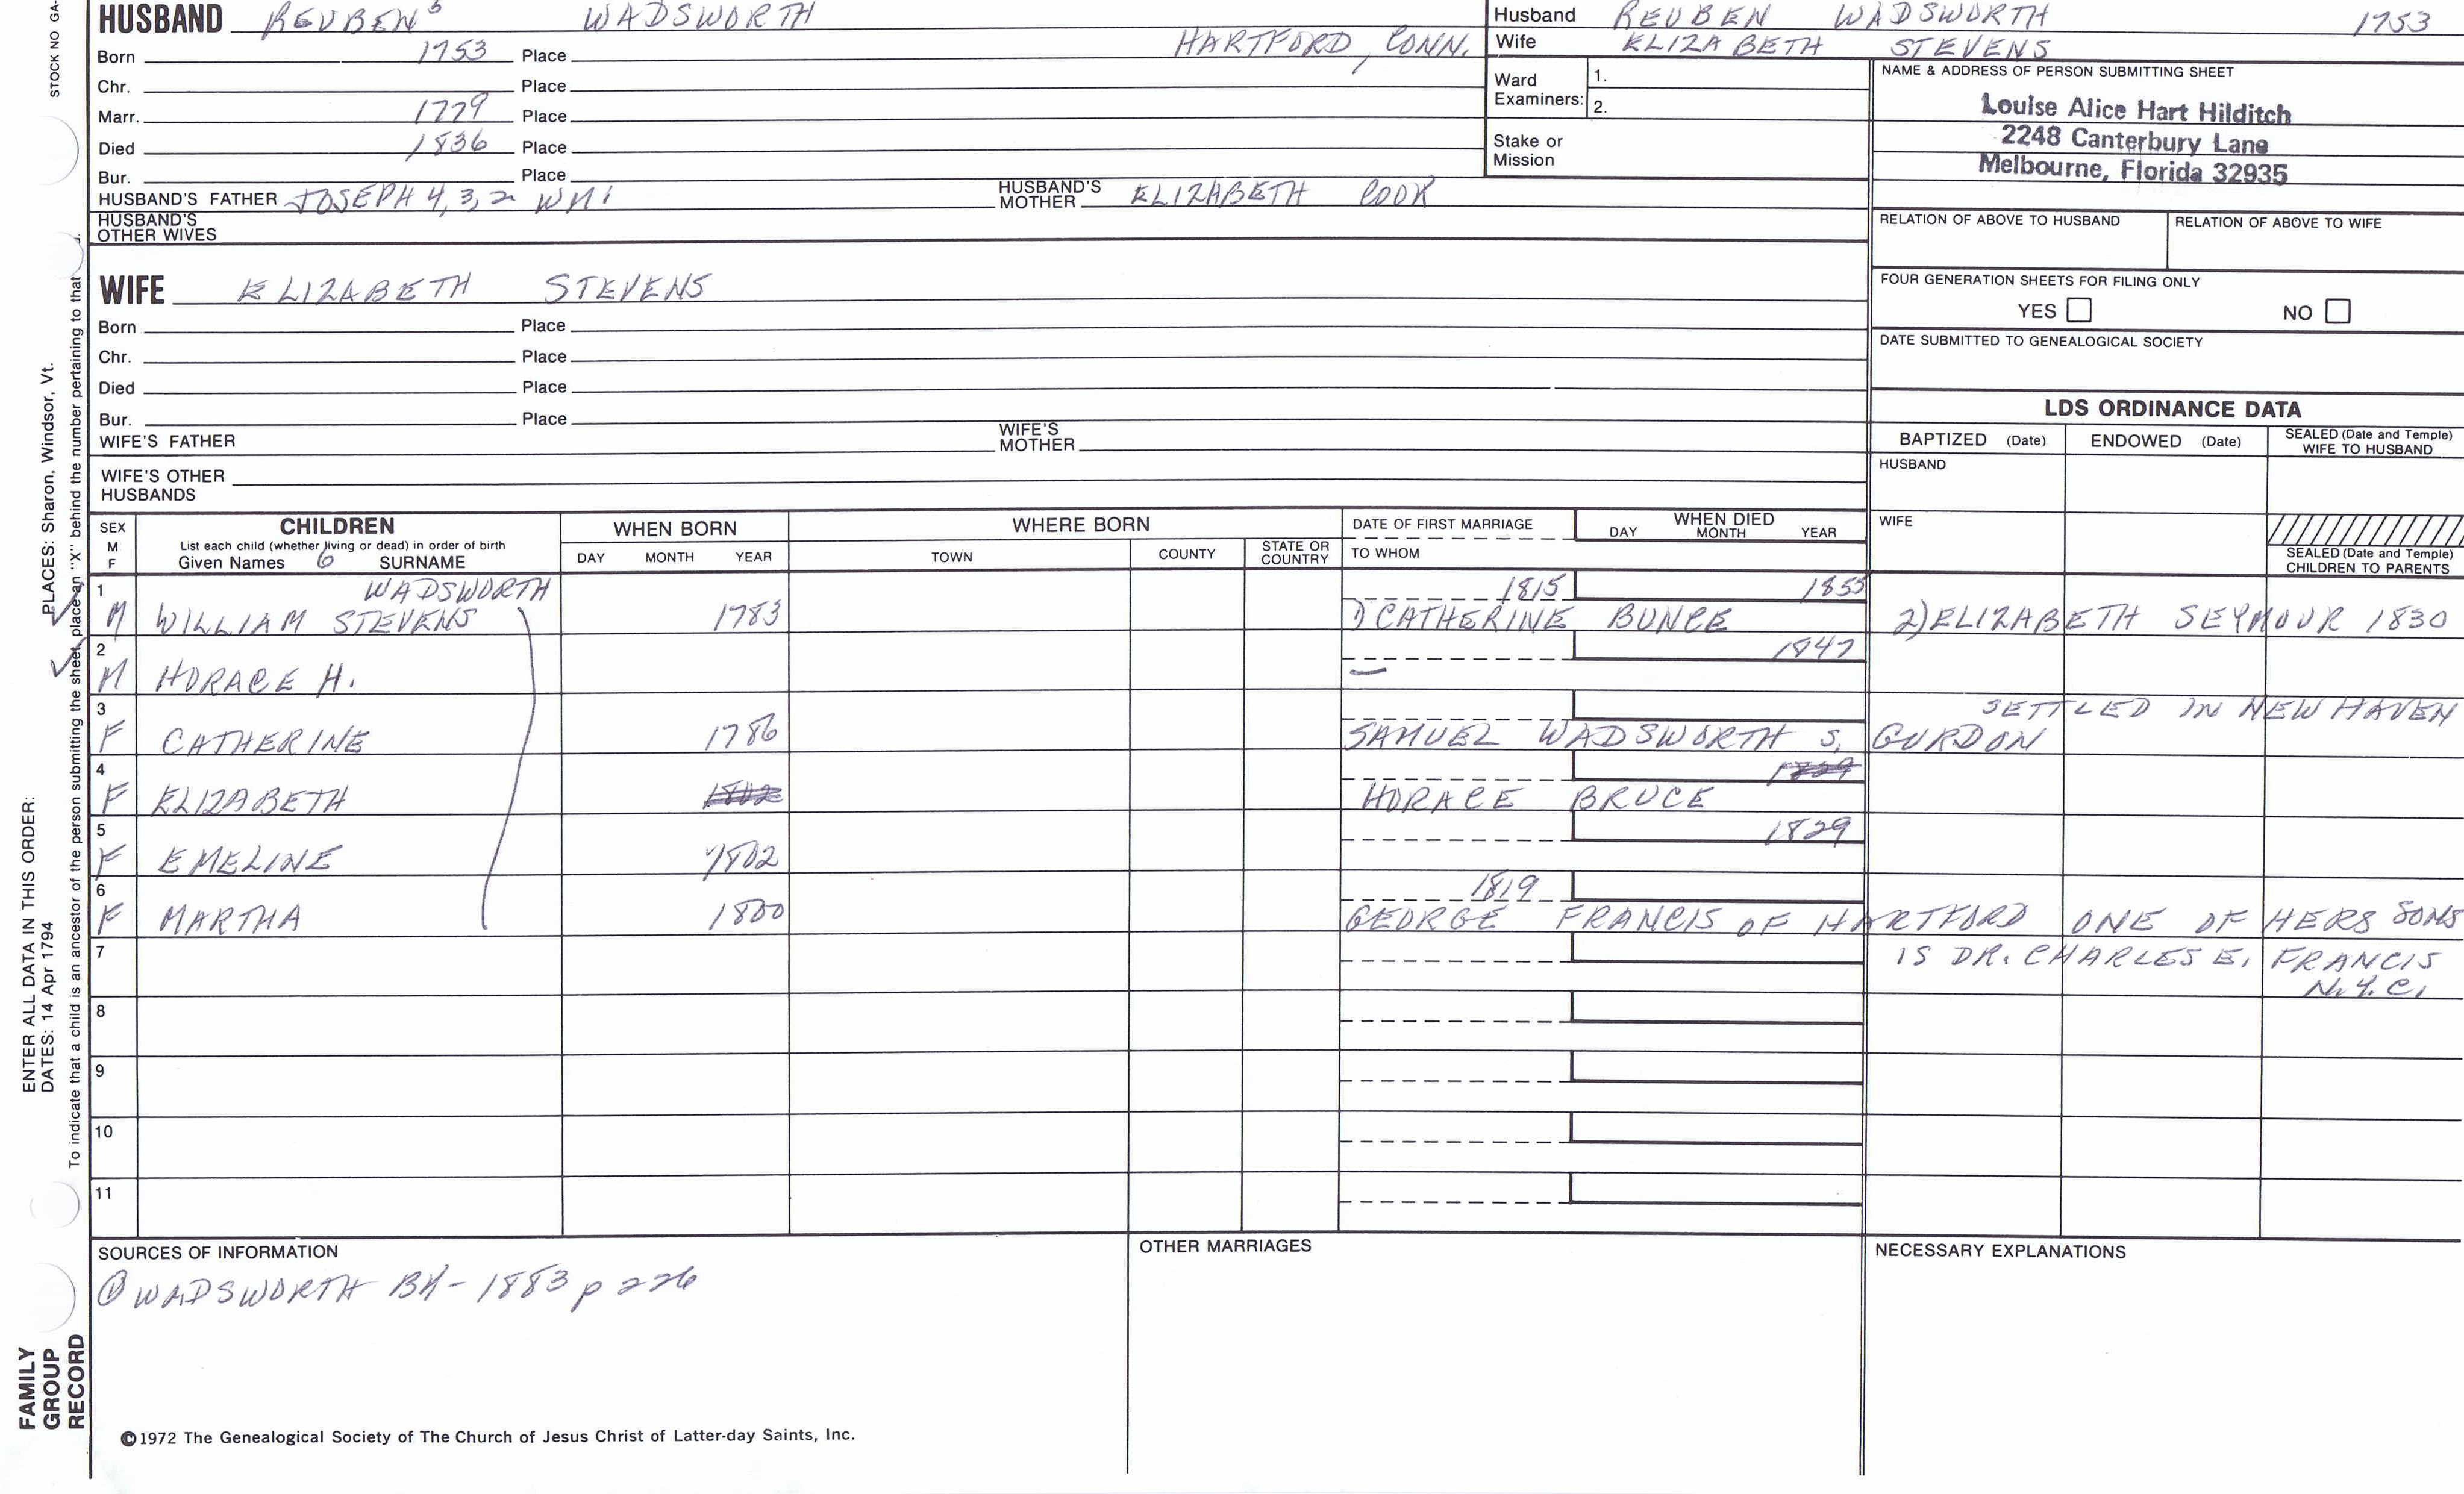 HUSBAND REUBEN 5 WADSWORTH
Born 1753 Place HARTFORD, CONN.
Chr. Place
Marr. 1779 Place
Died 1836 Place
Bur. Place
HUSBAND'S FATHER JOSEPH 4, 3, 2 WM1 HUSBAND'S MOTHER ELIZABETH COOK
HUSBAND'S OTHER WIVES
Husband REUBEN WADSWORTH 1753
Wife ELIZABETH STEVENS
Ward Examiners: 1.
2.
Stake or Mission
NAME & ADDRESS OF PERSON SUBMITTING SHEET
Louise Alice Hart Hilditch
2248 Canterbury Lane
Melbourne, Florida 32935
RELATION OF ABOVE TO HUSBAND RELATION OF ABOVE TO WIFE
FOUR GENERATION SHEETS FOR FILING ONLY
YES NO
DATE SUBMITTED TO GENEALOGICAL SOCIETY
WIFE ELIZABETH STEVENS
Born Place
Chr. Place
Died Place
Bur. Place
WIFE'S FATHER WIFE'S MOTHER
WIFE'S OTHER HUSBANDS
LDS ORDINANCE DATA
BAPTIZED (Date) ENDOWED (Date) SEALED (Date and Temple) WIFE TO HUSBAND
HUSBAND
WIFE
SEALED (Date and Temple) CHILDREN TO PARENTS
SEX M F
CHILDREN
List each child (whether living or dead) in order of birth
Given Names 6 SURNAME
WHEN BORN
DAY MONTH YEAR
WHERE BORN
TOWN COUNTY STATE OR COUNTRY
DATE OF FIRST MARRIAGE
TO WHOM
WHEN DIED
DAY MONTH YEAR
1 WADSWORTH 1815 1855
M WILLIAM STEVENS 1783 1) CATHERINE BUNCE 2) ELIZABETH SEYMOUR 1830
2 1847
M HORACE H. —
3 SETTLED IN NEW HAVEN
F CATHERINE 1786 SAMUEL WADSWORTH S. GURDON
4 1829
F ELIZABETH 1802 HORACE BRUCE
5 1829
F EMELINE 1802
6 1819
F MARTHA 1800 GEORGE FRANCIS OF HARTFORD ONE OF HERS SONS
7 IS DR. CHARLES E. FRANCIS
N.Y.C.
8
9
10
11
SOURCES OF INFORMATION
① WADSWORTH BK - 1883 p 226
OTHER MARRIAGES
NECESSARY EXPLANATIONS
©1972 The Genealogical Society of The Church of Jesus Christ of Latter-day Saints, Inc.
STOCK NO GA-
PLACES: Sharon, Windsor, Vt.
ENTER ALL DATA IN THIS ORDER:
DATES: 14 Apr 1794
To indicate that a child is an ancestor of the person submitting the sheet, place an "X" behind the number pertaining to that
FAMILY
GROUP
RECORD